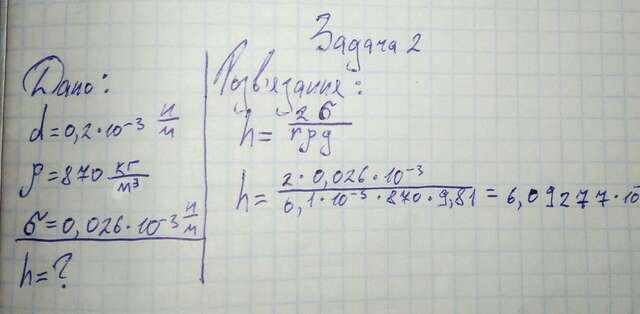 Задача 2
Дано:
d=0,2·10⁻³ Н/м
ρ=870 кг/м³
σ=0,026·10⁻³ Н/м
h=?
Розв'язання:
h= 2σ/rρg
h= 2·0,026·10⁻³/0,1·10⁻³·870·9,81 = 6,09277·10